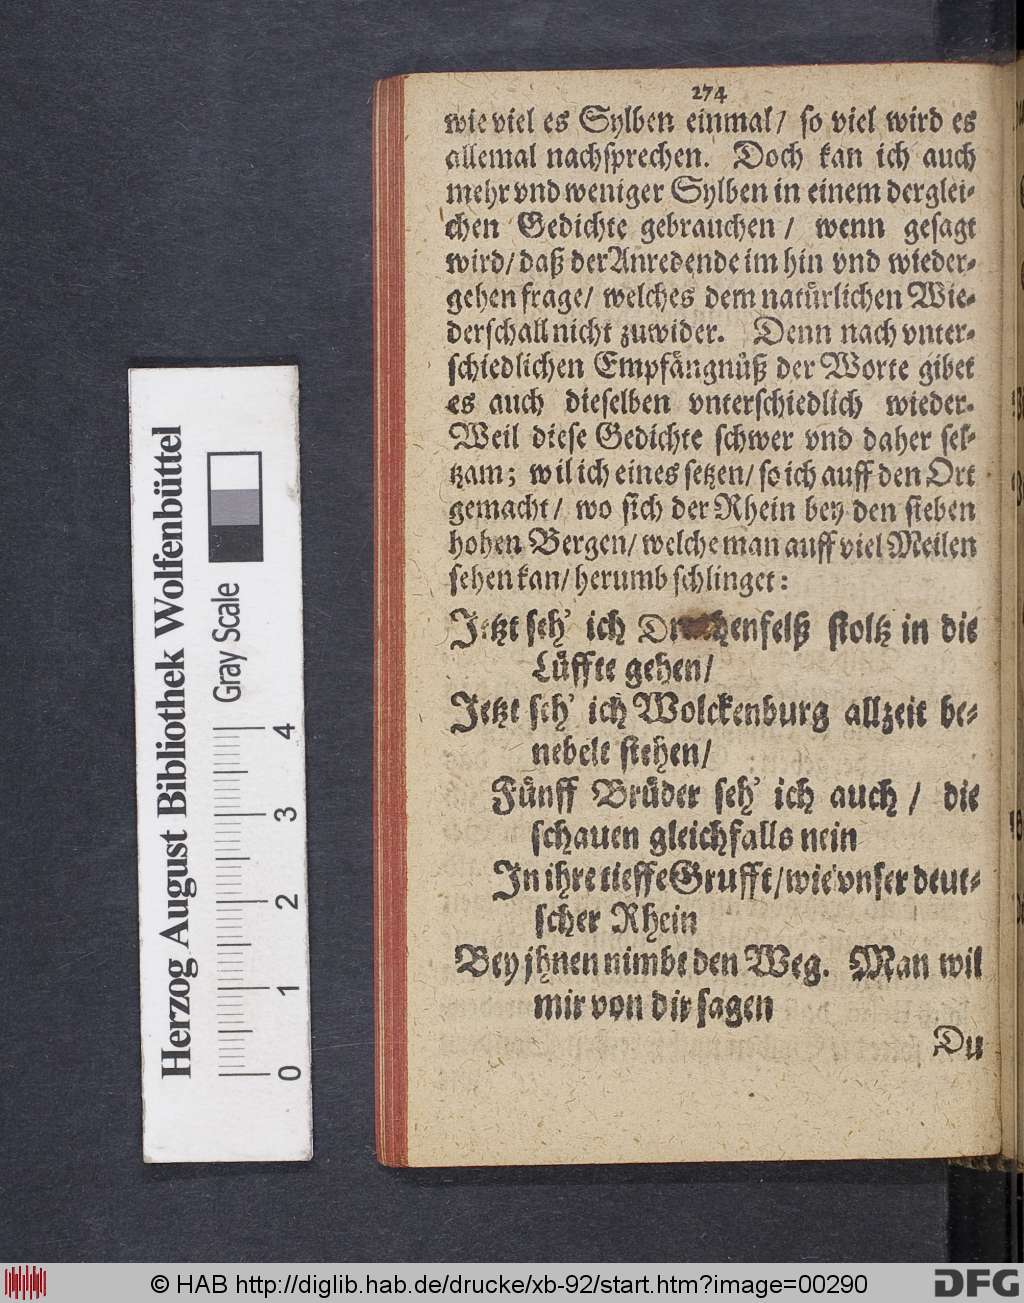 274
wie viel es Sylben einmal/ so viel wird es
allemal nachsprechen. Doch kan ich auch
mehr vnd weniger Sylben in einem derglei-
chen Gedichte gebrauchen/ wenn gesagt
wird/ daß der Anredende im hin vnd wieder-
gehen frage/ welches dem natürlichen Wie-
derschall nicht zuwider. Denn nach vnter-
schiedlichen Empfängnüß der Worte gibet
es auch dieselben vnterschiedlich wieder.
Weil diese Gedichte schwer vnd daher sel-
tzam; wil ich eines setzen/ so ich auff den Ort
gemacht/ wo sich der Rhein bey den sieben
hohen Bergen/ welche man auff viel Meilen
sehen kan/ herumb schlinget:
Jetzt seh' ich Drachenfelß stoltz in die
Lüffte gehen/
Jetzt seh' ich Wolckenburg allzeit be-
nebelt stehen/
Fünff Brüder seh' ich auch/ die
schauen gleichfalls nein
In ihre tieffe Grufft/ wie vnser deut-
scher Rhein
Bey jhnen nimbt den Weg. Man wil
mir von dir sagen
Du
Herzog August Bibliothek Wolfenbüttel
Gray Scale
0 1 2 3 4
© HAB http://diglib.hab.de/drucke/xb-92/start.htm?image=00290
DFG